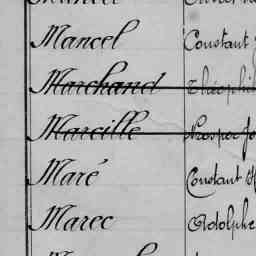 Mancel Constant
Marchand Théophile
Marcille Prosper
Maré Constant
Marec Adolphe